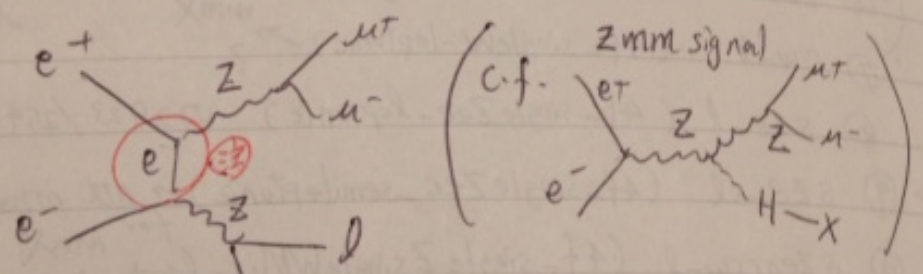 e+
Z
μ+
μ-
e
e-
Z
l
(c.f.
Zmm signal
e+
e-
Z
μ+
Z
μ-
H-X
)